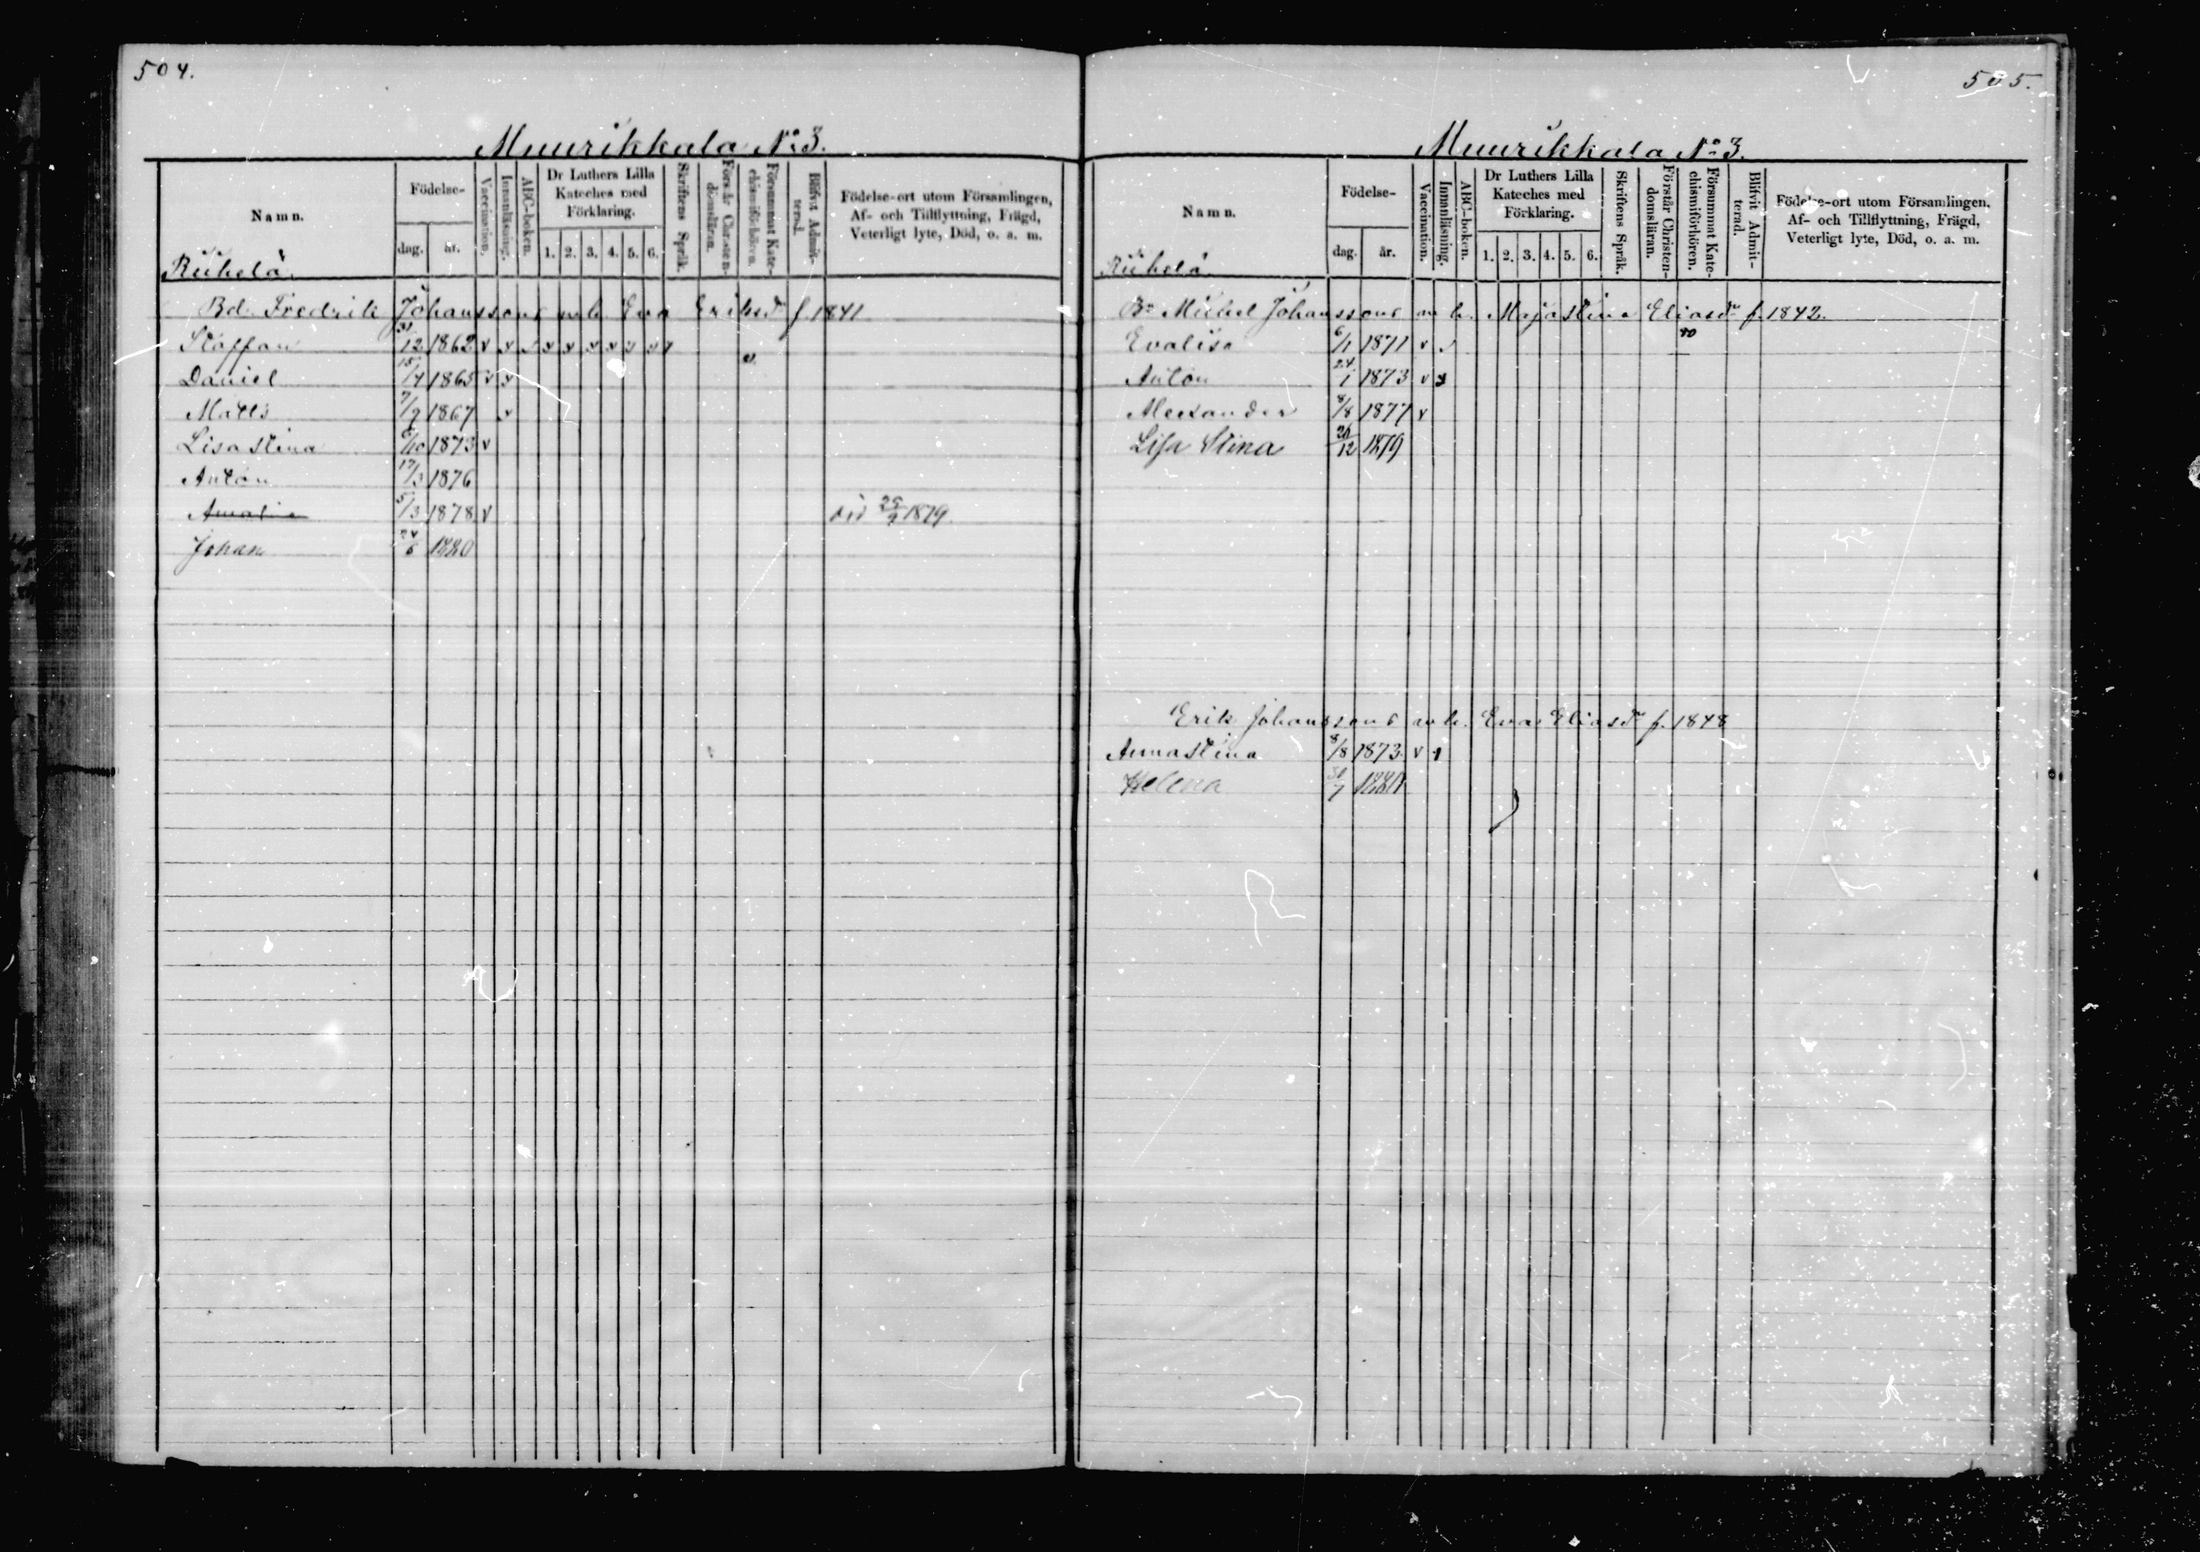 504.
Muurikkala No 3.
Namn.
Födelse-
dag.
år.
Vaccination.
Innanläsning.
ABC-boken.
Dr Luthers Lilla
Kateches med
Förklaring.
1. 2. 3. 4. 5. 6.
Skriftens Språk.
Förstår Christen-
domsläran.
Försummat Kate-
chismiförhören.
Blifvit Admit-
terad.
Födelse-ort utom Församlingen,
Af- och Tillflyttning, Frägd,
Veterligt lyte, Död, o. a. m.
Riihelä
Bd. Fredrik Johanssons m. h. Eva Eriksdr f. 1841
Staffan 31/12 1862 v x x x x x x x x
Daniel 15/4 1865 v x
Matts 7/9 1867 x
Lisastina 6/10 1873 v
Anton 17/3 1876
Amalia 5/3 1878 v död 25/9 1879.
Johan 24/6 1880
505.
Muurikkala No 3.
Namn.
Födelse-
dag.
år.
Vaccination.
Innanläsning.
ABC-boken.
Dr Luthers Lilla
Kateches med
Förklaring.
1. 2. 3. 4. 5. 6.
Skriftens Språk.
Förstår Christen-
domsläran.
Försummat Kate-
chismiförhören.
Blifvit Admit-
terad.
Födelse-ort utom Församlingen,
Af- och Tillflyttning, Frägd,
Veterligt lyte, Död, o. a. m.
Riihelä
Br Michel Johanssons m. h. Majastina Eliasdr f. 1842.
Evalisa 6/1 1871 v 80
Anton 24/1 1873 v x
Alexander 8/8 1877 v
Lisa Stina 26/12 1879
Erik Johanssons m. h. Eva Eliasdr f. 1848
Annastina 8/8 1873 v
Helena 30/7 1880